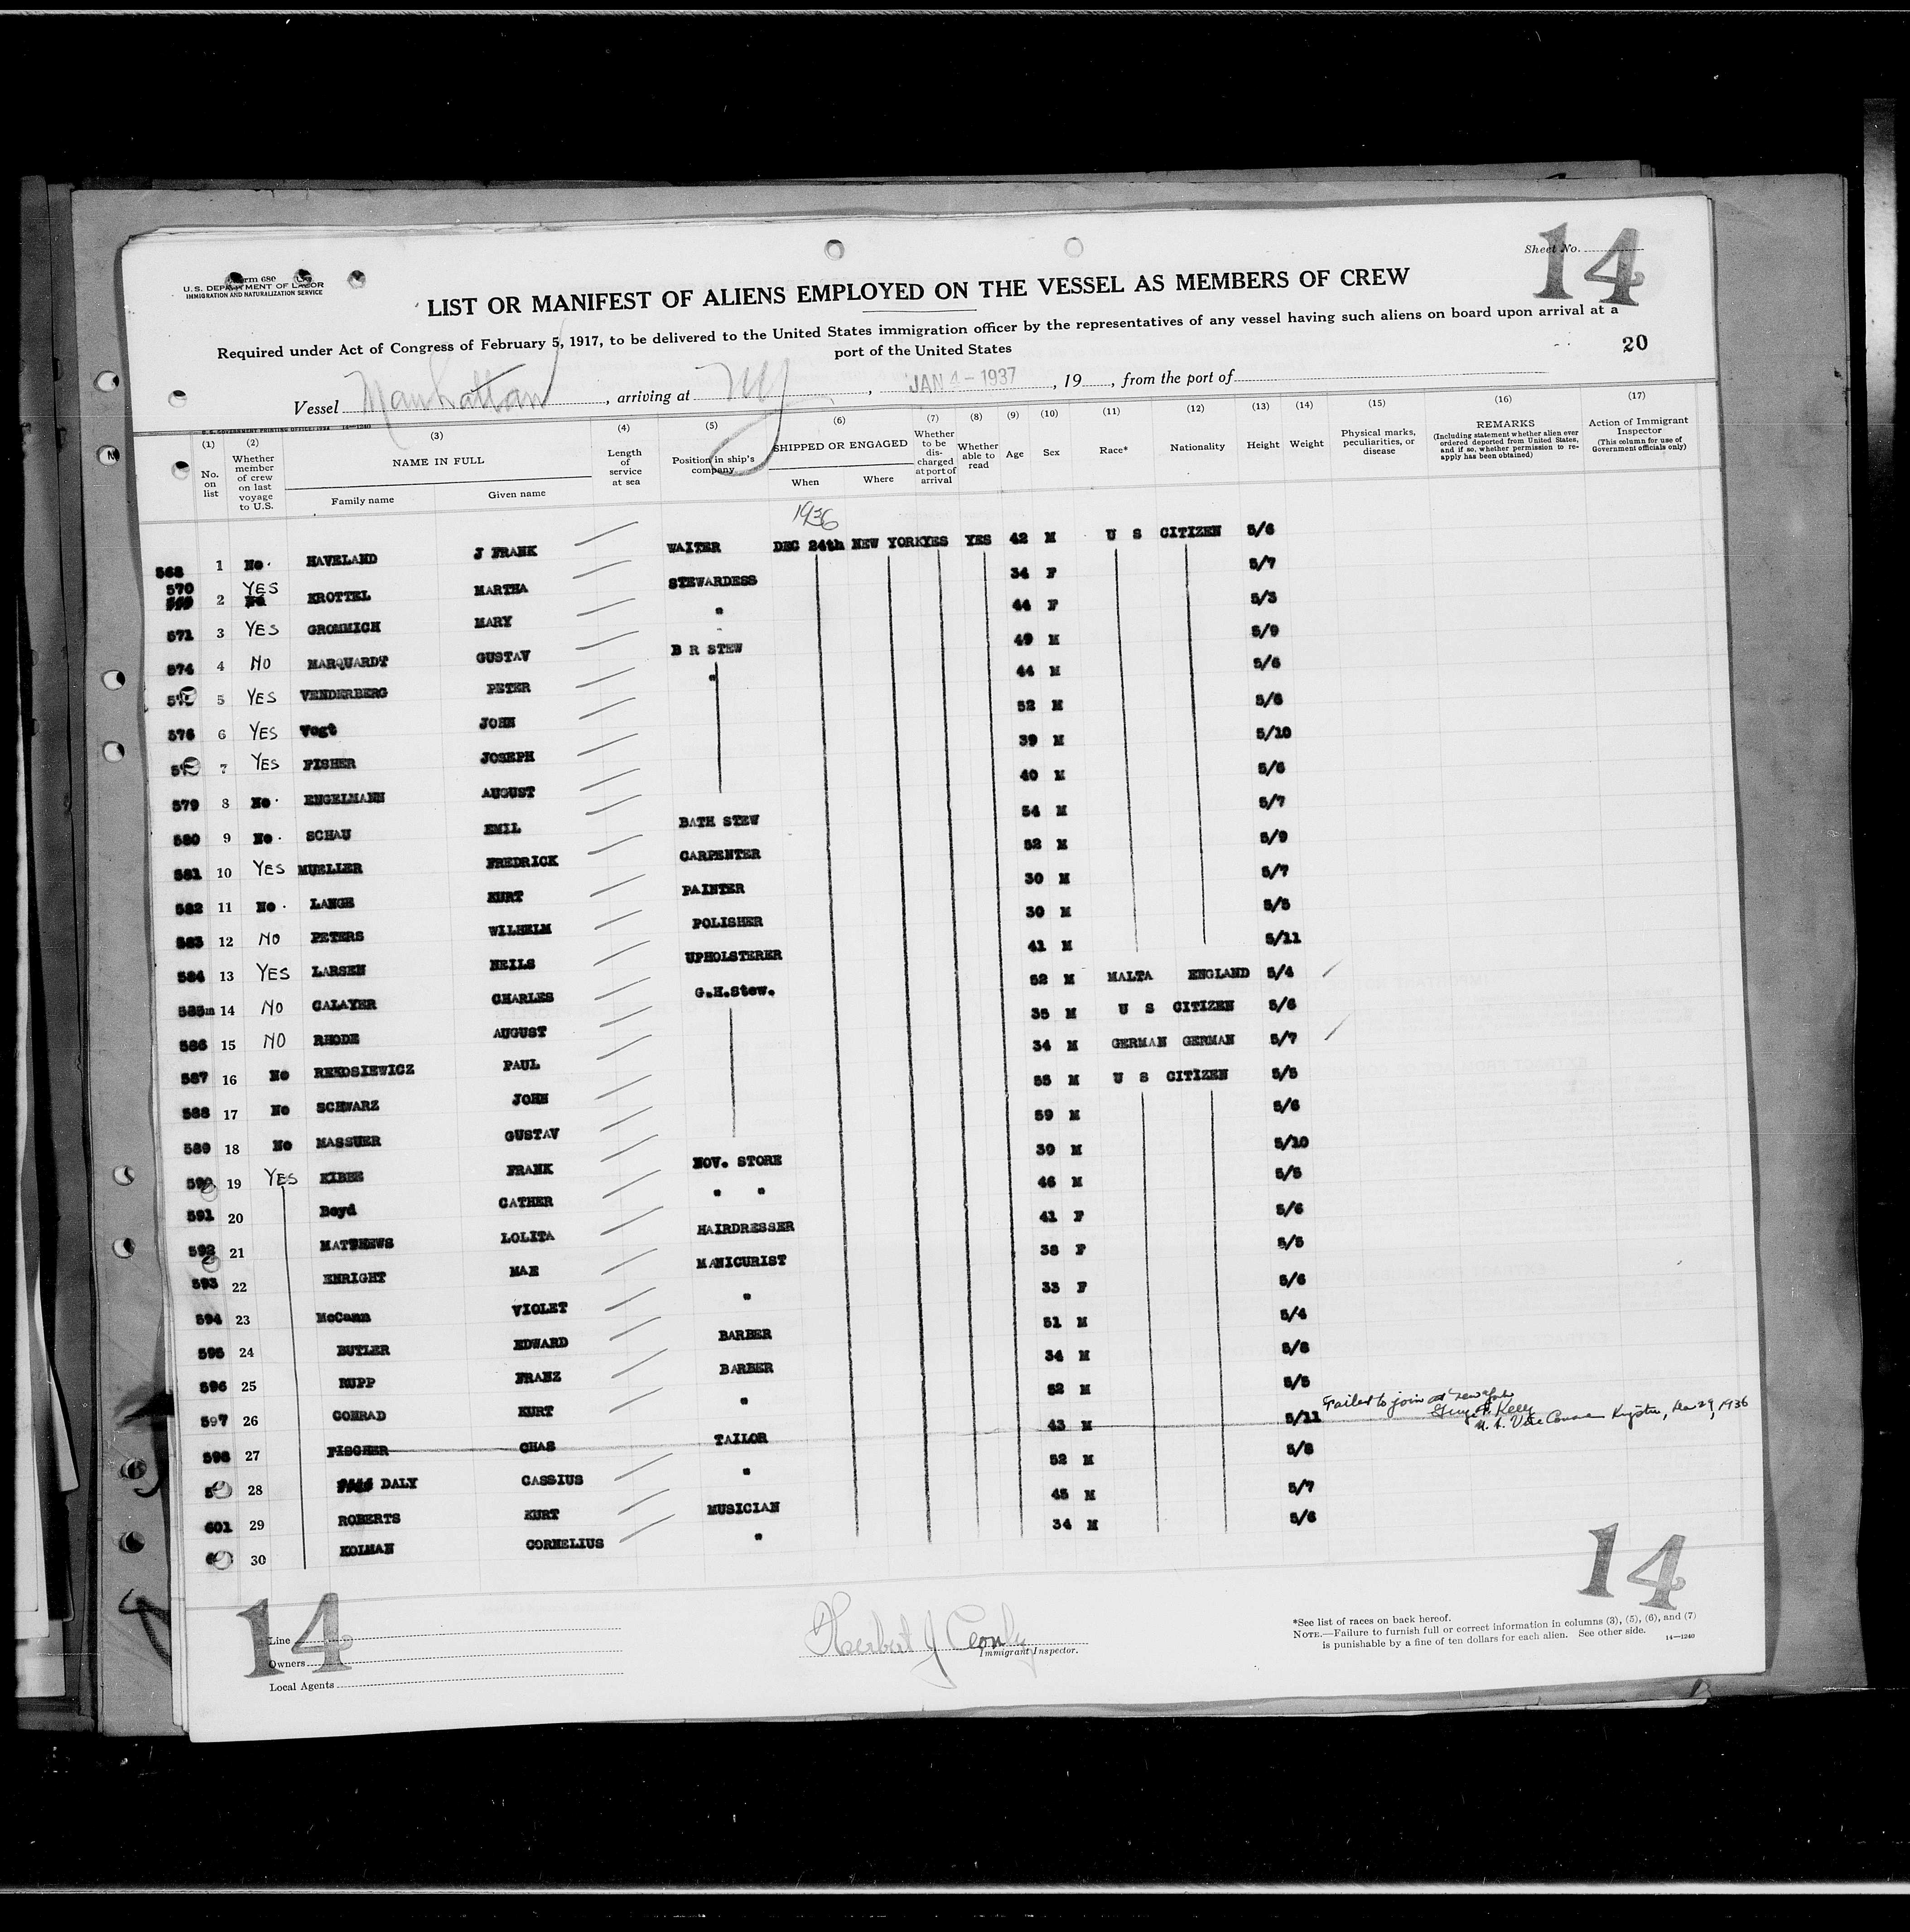 Sheet No.
14
Form 680
U. S. DEPARTMENT OF LABOR
IMMIGRATION AND NATURALIZATION SERVICE
LIST OR MANIFEST OF ALIENS EMPLOYED ON THE VESSEL AS MEMBERS OF CREW
Required under Act of Congress of February 5, 1917, to be delivered to the United States immigration officer by the representatives of any vessel having such aliens on board upon arrival at a
port of the United States
20
Vessel Manhattan, arriving at NY, JAN 4 - 1937, 19, from the port of
U. S. GOVERNMENT PRINTING OFFICE: 1934 14—1240
(1) (2) (3) (4) (5) (6) (7) (8) (9) (10) (11) (12) (13) (14) (15) (16) (17)
No. on list
Whether member of crew on last voyage to U.S.
NAME IN FULL
Family name Given name
Length of service at sea
Position in ship's company
SHIPPED OR ENGAGED
When Where
Whether to be discharged at port of arrival
Whether able to read
Age Sex Race* Nationality Height Weight
Physical marks, peculiarities, or disease
REMARKS
(Including statement whether alien ever ordered deported from United States, and if so, whether permission to reapply has been obtained)
Action of Immigrant Inspector
(This column for use of Government officials only)
1936
568 1 No. HAVELAND J FRANK WAITER DEC 24th NEW YORK YES YES 42 M U S CITIZEN 5/6
570 2 YES KROTTEL MARTHA STEWARDESS 34 F 5/7
571 3 YES GROMMICH MARY " 44 F 5/3
574 4 NO MARQUARDT GUSTAV B R STEW 49 M 5/9
5 YES VENDERBERG PETER " 44 M 5/6
576 6 YES Vogt JOHN 52 M 5/8
7 YES FISHER JOSEPH 39 M 5/10
579 8 No. ENGELMANN AUGUST 40 M 5/6
580 9 No. SCHAU EMIL BATH STEW 54 M 5/7
581 10 YES MUELLER FREDRICK CARPENTER 52 M 5/9
582 11 No. LANGE KURT PAINTER 30 M 5/7
583 12 NO PETERS WILHELM POLISHER 30 M 5/5
584 13 YES LARSEN NEILS UPHOLSTERER 41 M 5/11
585m 14 NO CALAYER CHARLES G.H.Stew. 52 M MALTA ENGLAND 5/4
586 15 NO RHODE AUGUST 35 M U S CITIZEN 5/6
587 16 No REKOSIEWICZ PAUL 34 M GERMAN GERMAN 5/7
588 17 No SCHWARZ JOHN 55 M U S CITIZEN 5/5
589 18 No MASSUER GUSTAV 59 M 5/6
590 19 YES KIBBE FRANK NOV. STORE 39 M 5/10
591 20 Boyd CATHER " " 46 M 5/5
592 21 MATTHEWS LOLITA HAIRDRESSER 41 F 5/6
593 22 ENRIGHT MAE MANICURIST 38 F 5/5
594 23 McCann VIOLET " 33 F 5/6
595 24 BUTLER EDWARD BARBER 51 M 5/4
596 25 RUPP FRANZ BARBER 34 M 5/8
597 26 CONRAD KURT " 52 M 5/5
598 27 FISCHER CHAS TAILOR 43 M 5/11 Failed to join at New York
George F. Kelly
U. S. Vice Consul Kingston, Dec 29, 1936
28 DALY CASSIUS " 52 M 5/8
601 29 ROBERTS KURT MUSICIAN 45 M 5/7
30 KOLMAN CORNELIUS " 34 M 5/6
14
14
Line
Owners
Local Agents
Herbert J
Immigrant Inspector.
*See list of races on back hereof.
NOTE.—Failure to furnish full or correct information in columns (3), (5), (6), and (7)
is punishable by a fine of ten dollars for each alien. See other side. 14—1240